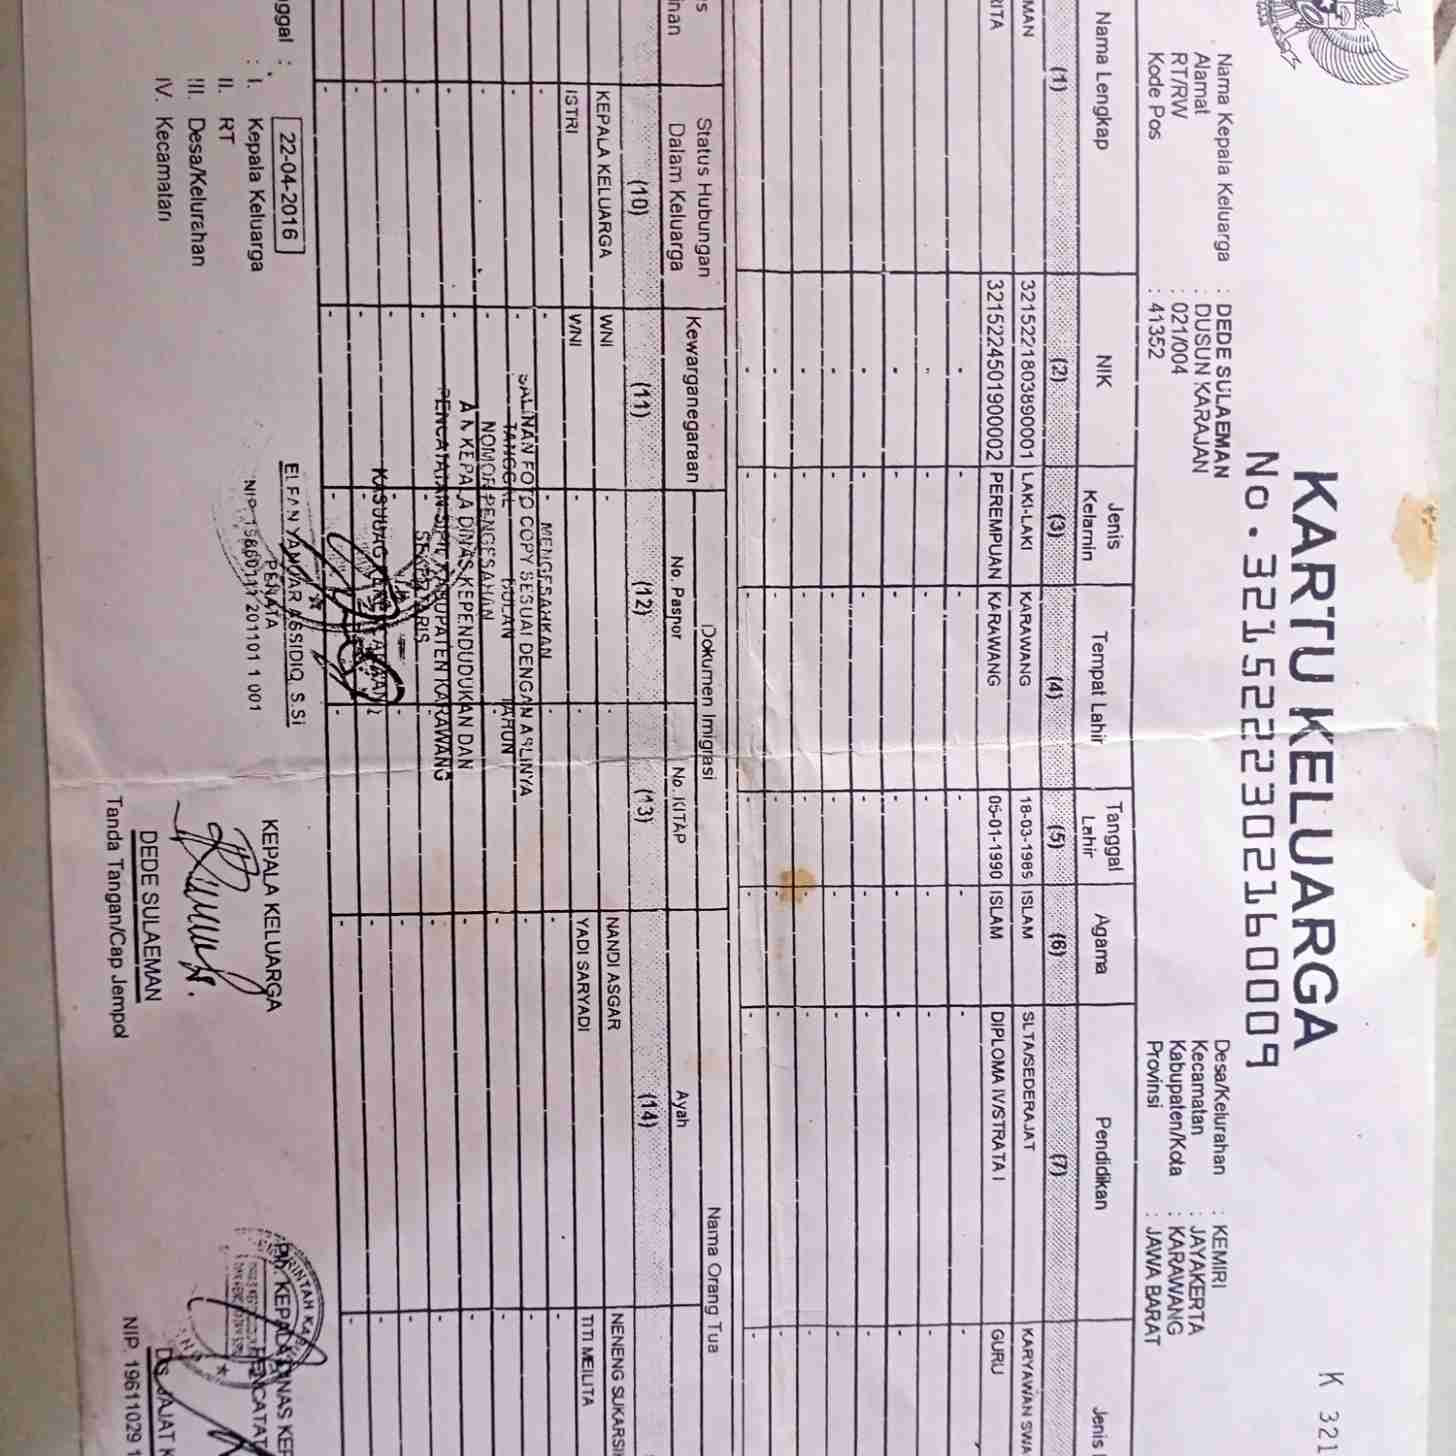 K 321
KARTU KELUARGA
No. 3215222302160009
Nama Kepala Keluarga : DEDE SULAEMAN
Alamat : DUSUN KARAJAN
RT/RW : 021/004
Kode Pos : 41352
Desa/Kelurahan : KEMIRI
Kecamatan : JAYAKERTA
Kabupaten/Kota : KARAWANG
Provinsi : JAWA BARAT
Nama Lengkap NIK Jenis Kelamin Tempat Lahir Tanggal Lahir Agama Pendidikan Jenis
(1) (2) (3) (4) (5) (6) (7)
MAN 3215221803890001 LAKI-LAKI KARAWANG 18-03-1985 ISLAM SLTA/SEDERAJAT KARYAWAN SWA
RITA 3215224501900002 PEREMPUAN KARAWANG 05-01-1990 ISLAM DIPLOMA IV/STRATA I GURU
Status Hubungan Dalam Keluarga Kewarganegaraan Dokumen Imigrasi Nama Orang Tua
No. Paspor No. KITAP Ayah
(10) (11) (12) (13) (14)
KEPALA KELUARGA WNI - - NANDI ASGAR NENENG SUKARSIH
ISTRI WNI - - YADI SARYADI TITI MEILITA
MENGESAHKAN
SALINAN FOTO COPY SESUAI DENGAN ASLINYA
TANGGAL BULAN TAHUN
NOMOR PENGESAHAN
A.N KEPALA DINAS KEPENDUDUKAN DAN
PENCATATAN SIPIL KABUPATEN KARAWANG
SEKRETARIS
PENATA
NIP. 19860111 201101 1 001
nggal : 22-04-2016
: I. Kepala Keluarga
II. RT
III. Desa/Kelurahan
IV. Kecamatan
KEPALA KELUARGA
DEDE SULAEMAN
Tanda Tangan/Cap Jempol
KEPALA DINAS KEP
PENCATAT
NIP. 19611029 1